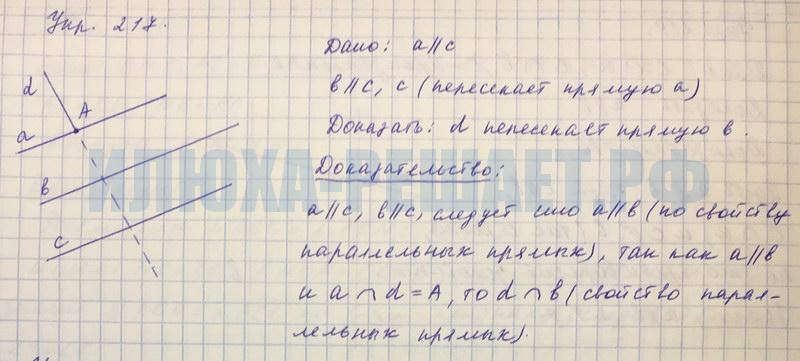 Упр. 217.
Дано: a∥c
в∥c, c (пересекает прямую a)
Доказать: d пересекает прямую в.
Доказательство:
a∥c, в∥c, следует что a∥в (по свойству
параллельных прямых), так как a∥в
и a ∩ d = A, то d ∩ в (свойство парал-
лельных прямых).
d
A
a
в
c
ИЛЮХА-РЕШАЕТ.РФ